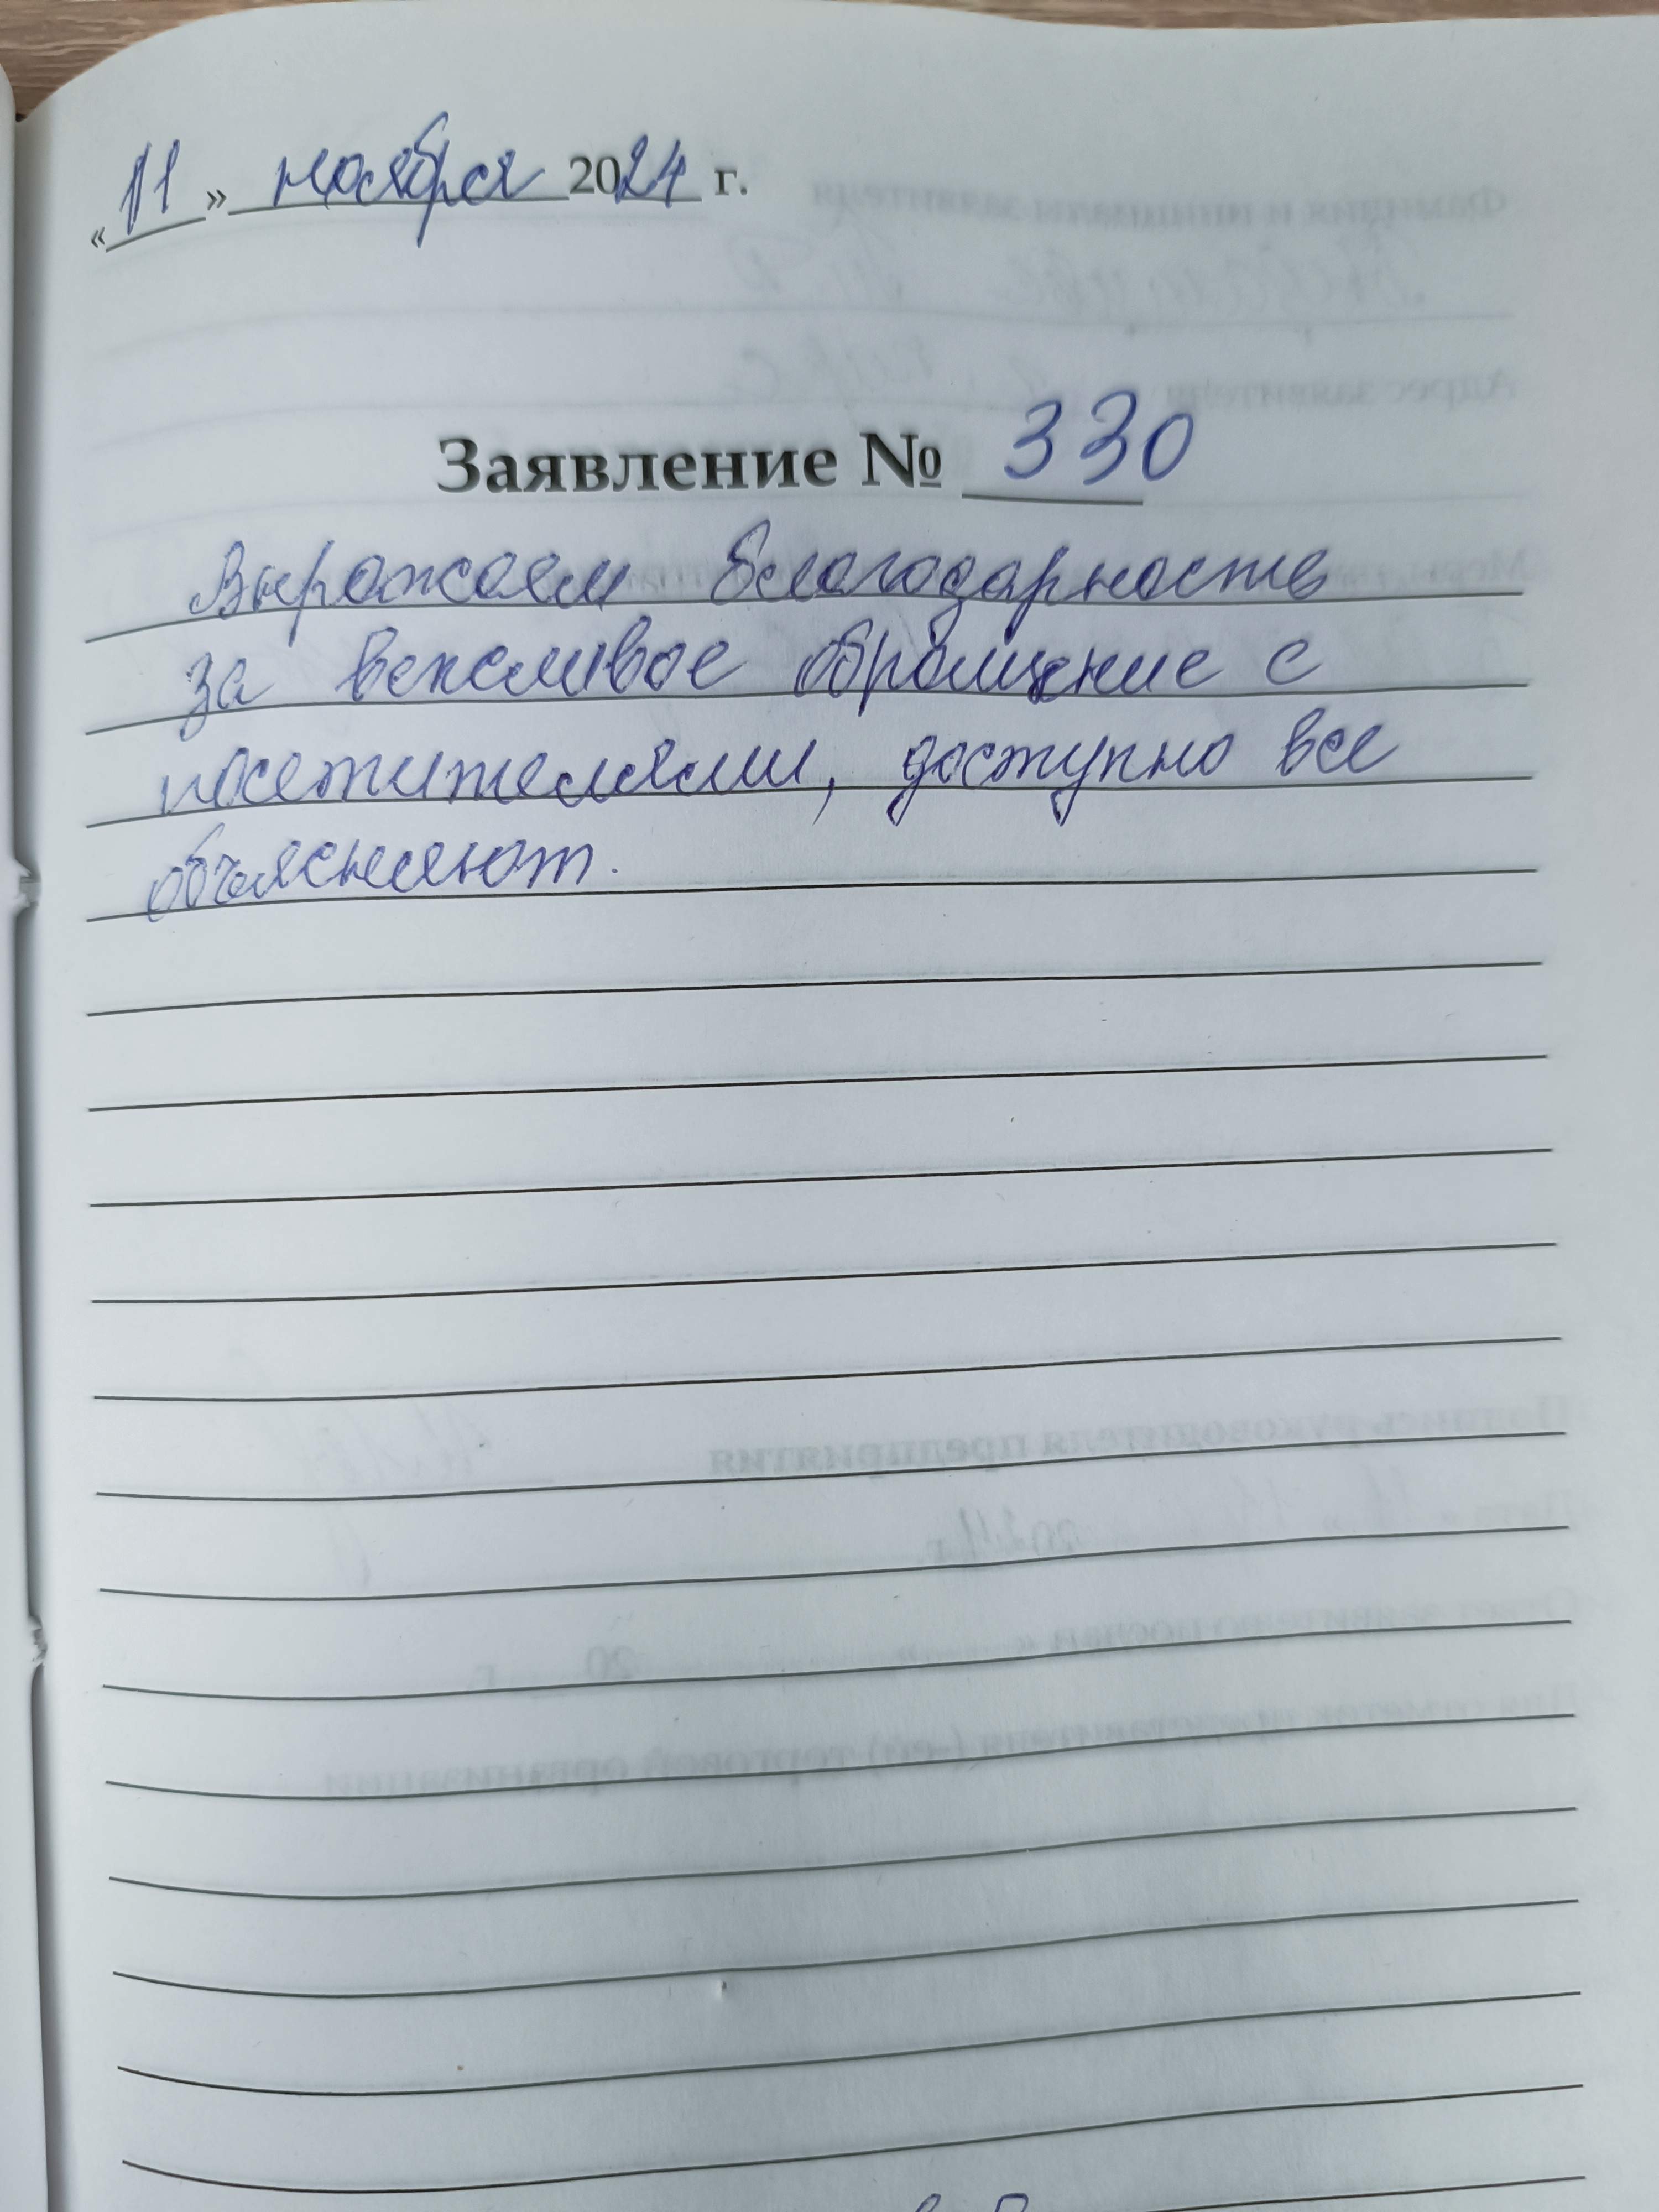 «11» ноября 2024 г.
Заявление № 330
Выражаем благодарность
за вежливое обращение с
посетителями, доступно все
объясняют.